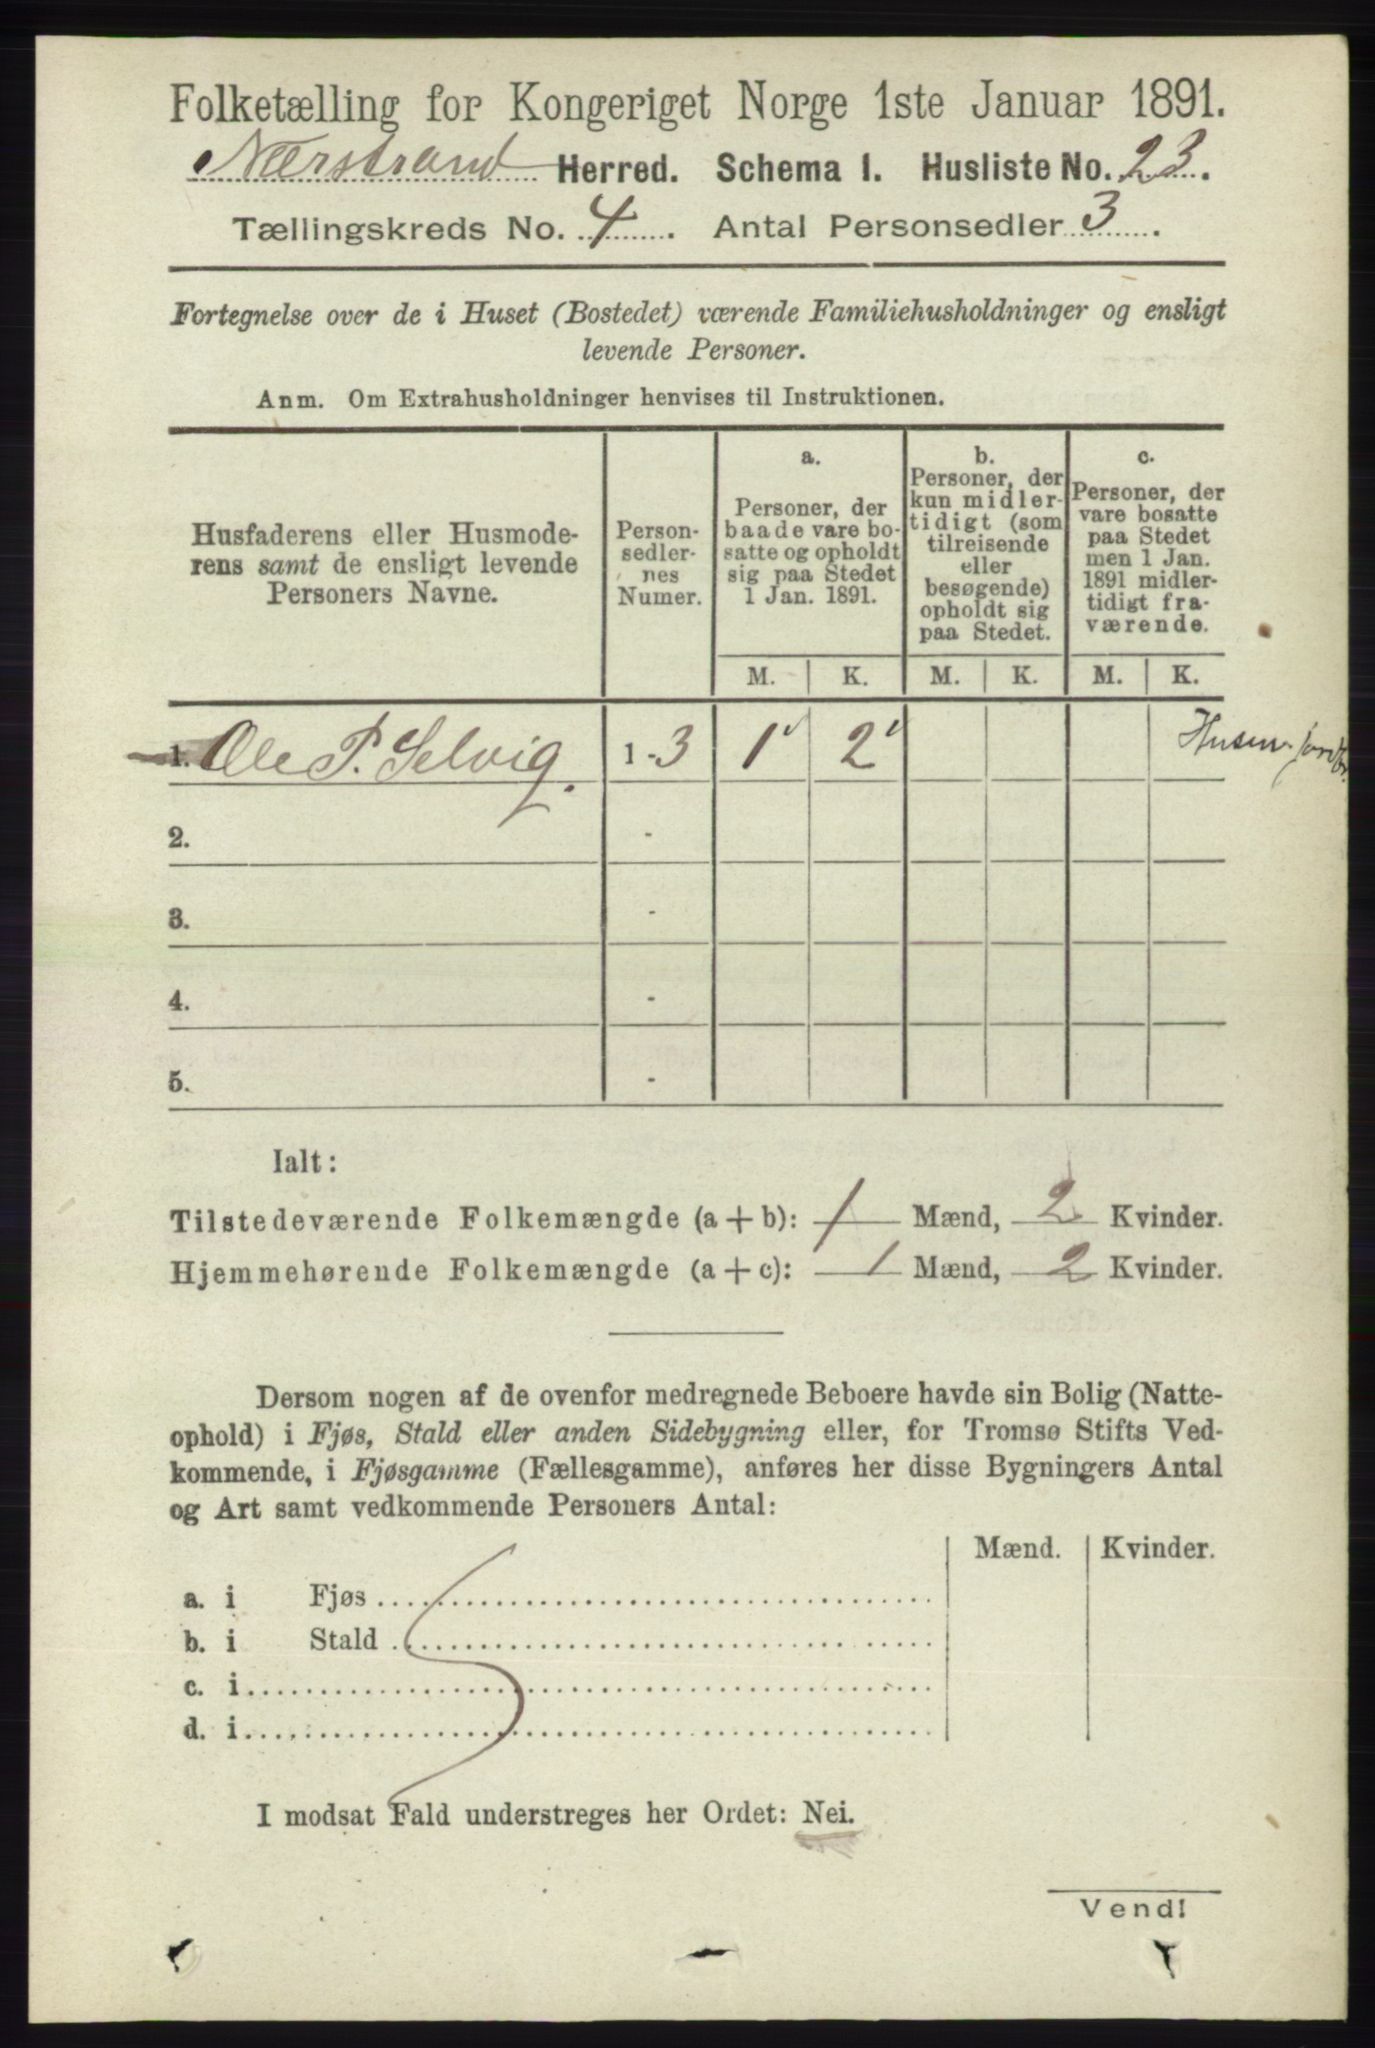 Folketælling for Kongeriget Norge 1ste Januar 1891.
Nærstrand Herred. Schema I. Husliste No. 23.
Tællingskreds No. 4. Antal Personsedler 3.
Fortegnelse over de i Huset (Bostedet) værende Familiehusholdninger og ensligt
levende Personer.
Anm. Om Extrahusholdninger henvises til Instruktionen.
Husfaderens eller Husmode-
rens samt de ensligt levende
Personers Navne.
Person-
sedler-
nes
Numer.
a.
Personer, der
baade vare bo-
satte og opholdt
sig paa Stedet
1 Jan. 1891.
b.
Personer, der
kun midler-
tidigt (som
tilreisende
eller
besøgende)
opholdt sig
paa Stedet.
c.
Personer, der
vare bosatte
paa Stedet
men 1 Jan.
1891 midler-
tidigt fra-
værende.
M. K. M. K. M. K.
1. Ole P. Selvig. 1-3 1 2
2. -
3. -
4. -
5. -
Ialt:
Tilstedeværende Folkemængde (a + b): 1 Mænd, 2 Kvinder.
Hjemmehørende Folkemængde (a + c): 1 Mænd, 2 Kvinder.
Dersom nogen af de ovenfor medregnede Beboere havde sin Bolig (Natte-
ophold) i Fjøs, Stald eller anden Sidebygning eller, for Tromsø Stifts Ved-
kommende, i Fjøsgamme (Fællesgamme), anføres her disse Bygningers Antal
og Art samt vedkommende Personers Antal:
Mænd. Kvinder.
a. i Fjøs
b. i Stald
c. i
d. i
I modsat Fald understreges her Ordet: Nei.
Vend!